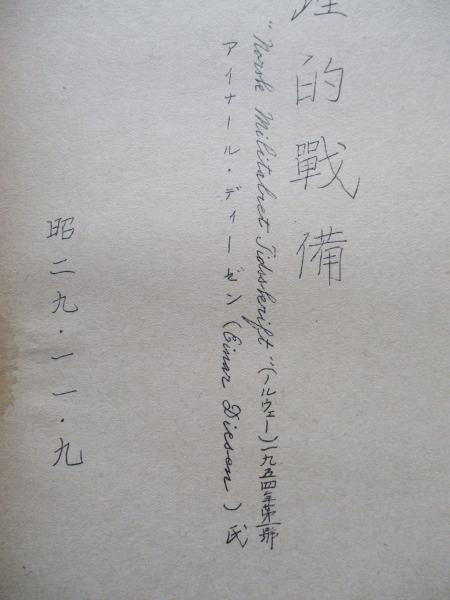 理的戰備
"Norsk Militalret Tidsskrift"(ノルウェー)一九五四年第一號
アイナール・ディーゼン(Einar Diesen)氏
昭二九・一一・九